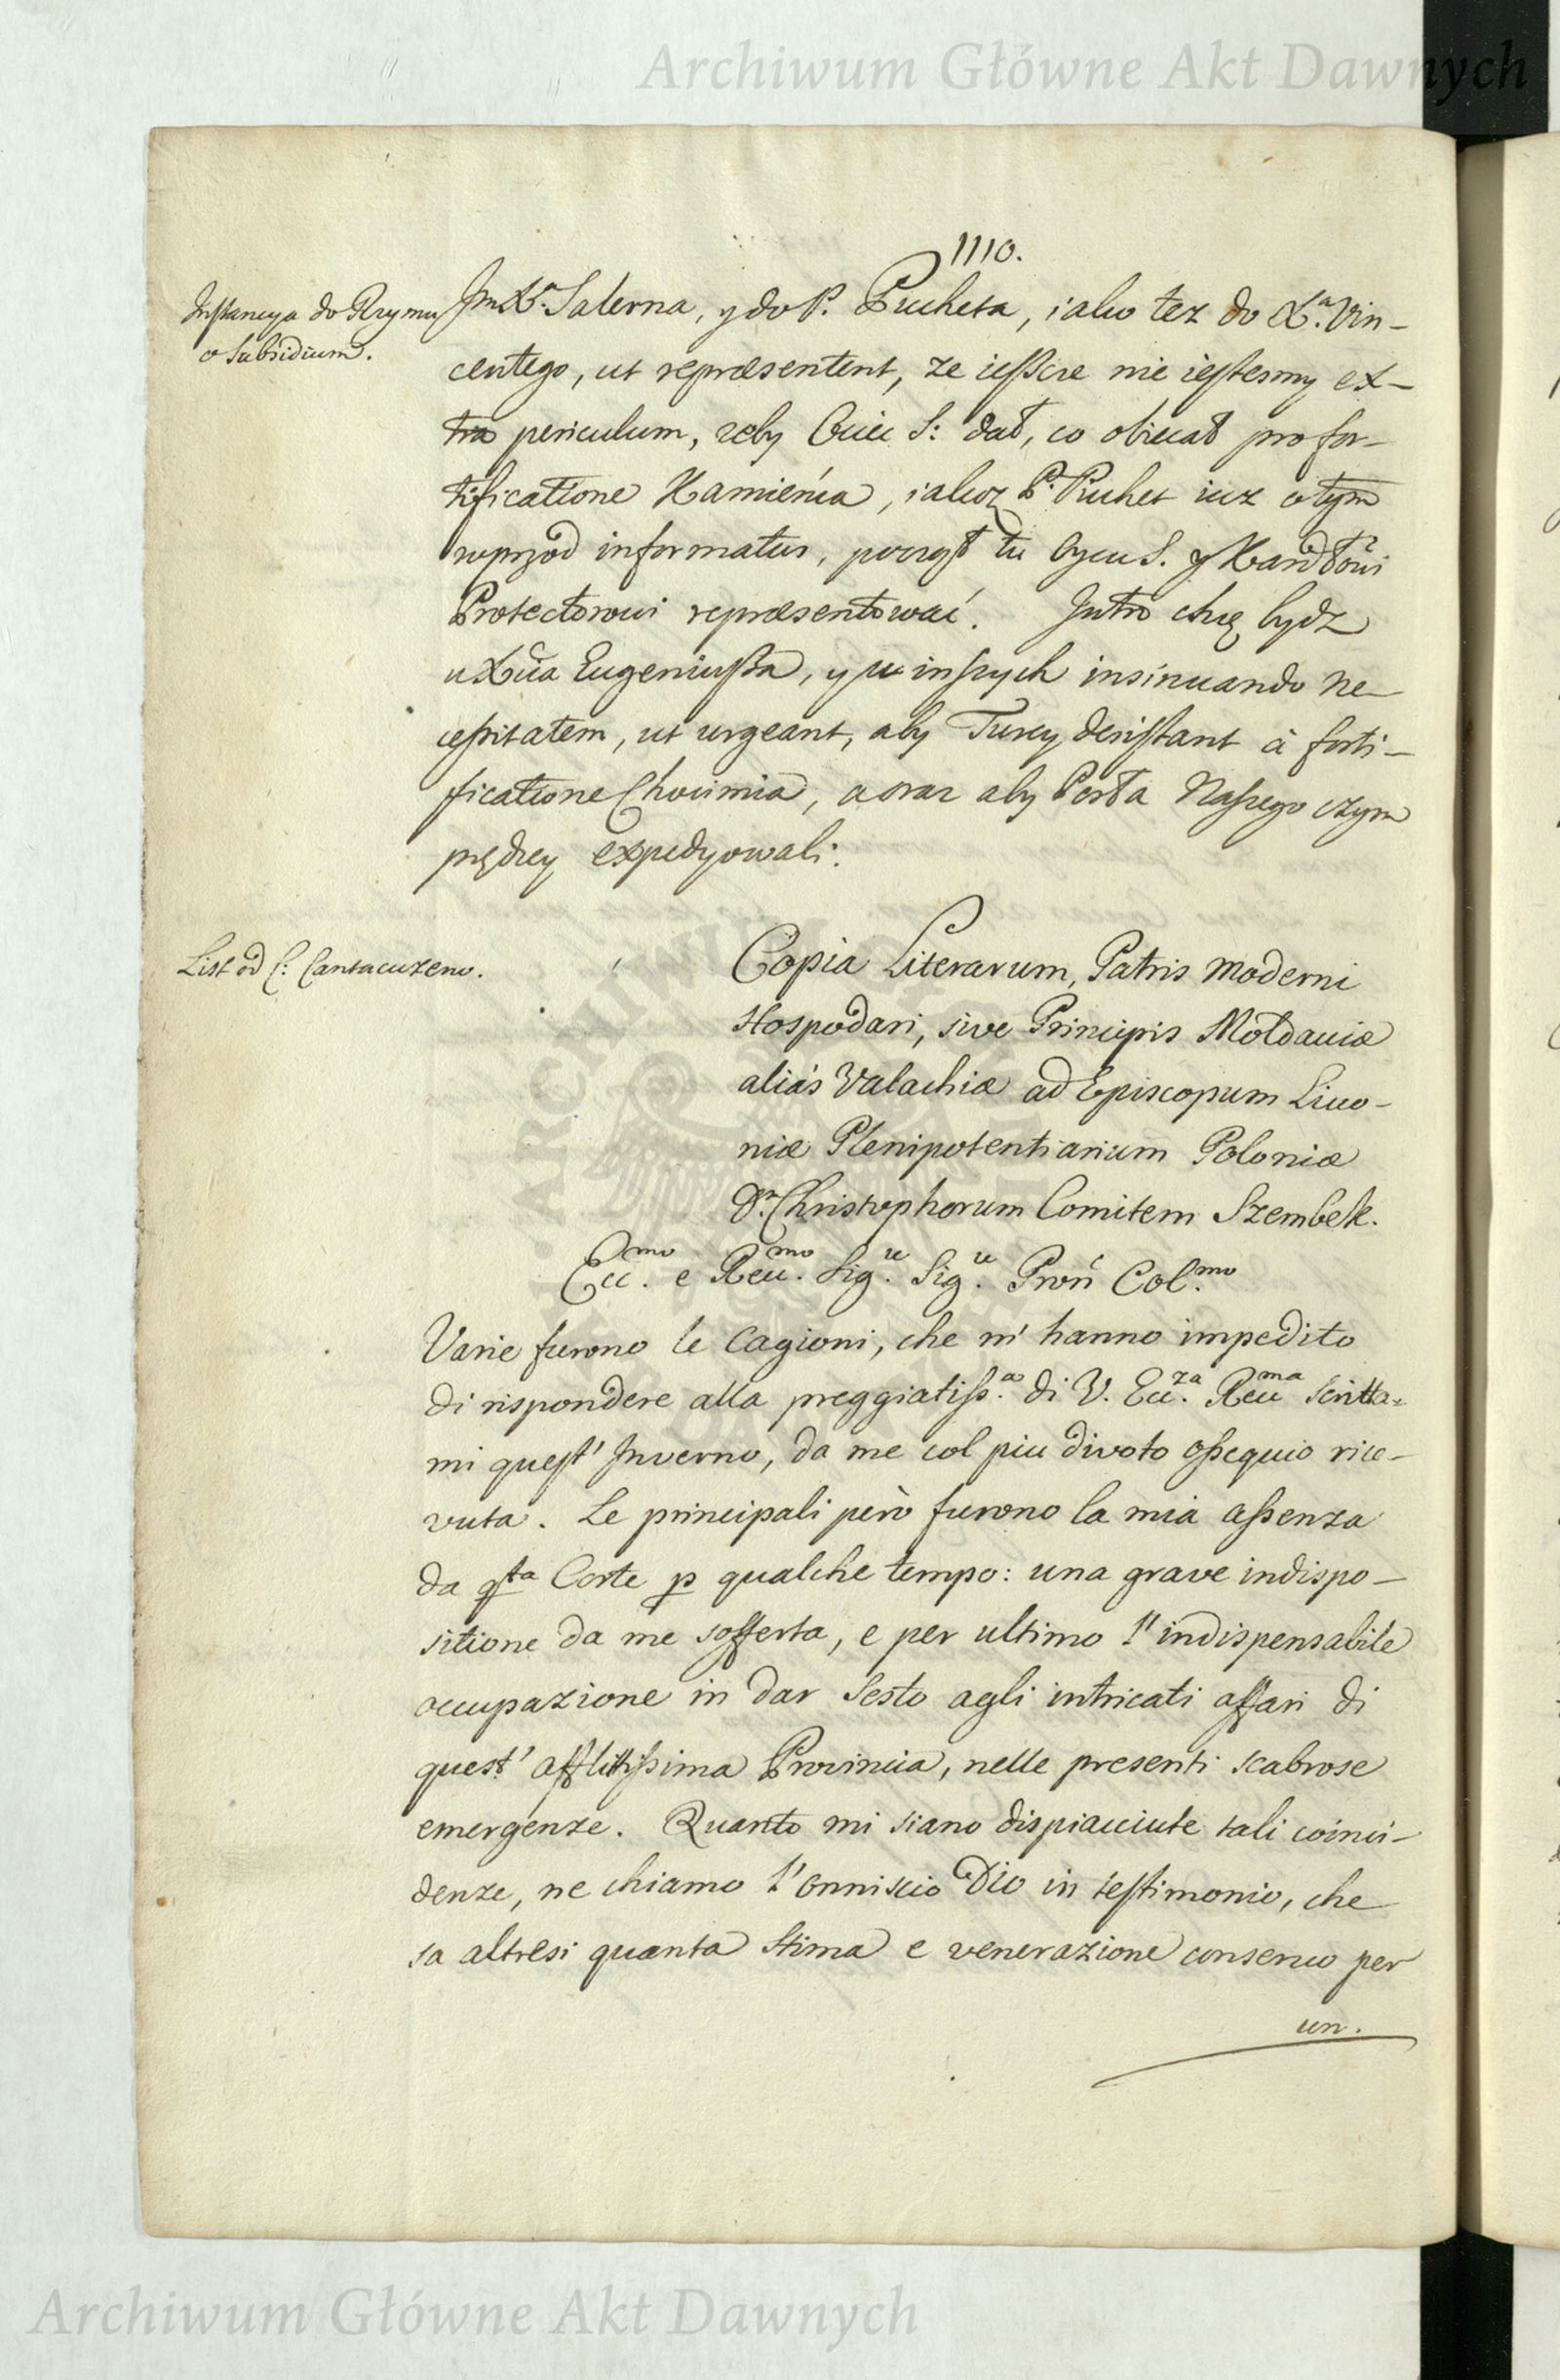 Archiwum Główne Akt Dawnych
1110.
Instancya do Rzymu
o Subsidium.
Jm X.ª Salerna, y do P. Pucheta, iako tez do X.ª Vin-
centego, ut repræsentent, ze ieszcze nie iestesmy ex-
tra periculum, zeby Ociec S: dał, co obiecał pro for-
tificatione Kamieńca, iakoz P. Puchet iuz o tym
wprzod informatus, począł tu Oycu S. y Kardłowi
Protectorowi repræsentować. Jutro chcę bydz
u Xcia Eugeniusza, y u inszych insinuando ne-
cessitatem, ut urgeant, aby Turcy desistant à forti-
ficatione Chocimia, a oraz aby Posła Naszego czym
prędzey expedyowali.
List od C: Cantacuzeno.
Copia Literarum, Patris Moderni
Hospodari, sive Principis Moldaviæ
aliás Valachiæ ad Episcopum Livo-
niæ Plenipotentiarium Poloniæ
Dn. Christophorum Comitem Szembek.
Ecc.mo e Reu.mo Sig.re Sig.re Pron Col.mo
Varie furono le Cagioni, che m' hanno impedito
di rispondere alla preggiatiss.a di V. Ecc.za Reu.ma scritta-
mi quest' Inverno, da me col piu divoto ossequio rice-
vuta. Le principali però furono la mia assenza
da q.ta Corte p qualche tempo: una grave indispo-
sitione da me sofferta, e per ultimo l' indispensabile
occupazione in dar sesto agli intricati affari di
quest' afflittissima Provincia, nelle presenti scabrose
emergenze. Quanto mi siano dispiacciute tali coinci-
denze, ne chiamo l' onniscio Dio in testimonio, che
sa altresi quanta stima e venerazione conservo per
un.
Archiwum Główne Akt Dawnych